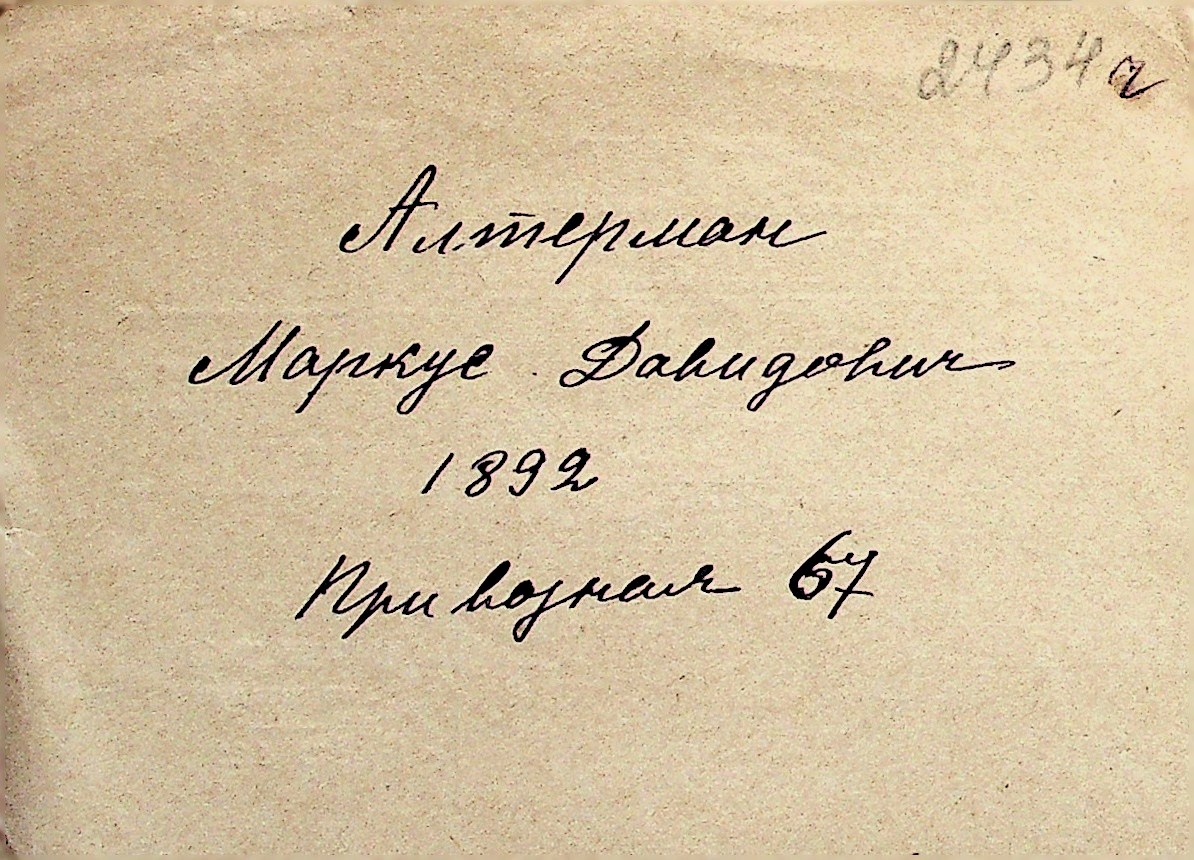 2434 ч
Алтерман
Маркус Давидович
1892
Привозная 67